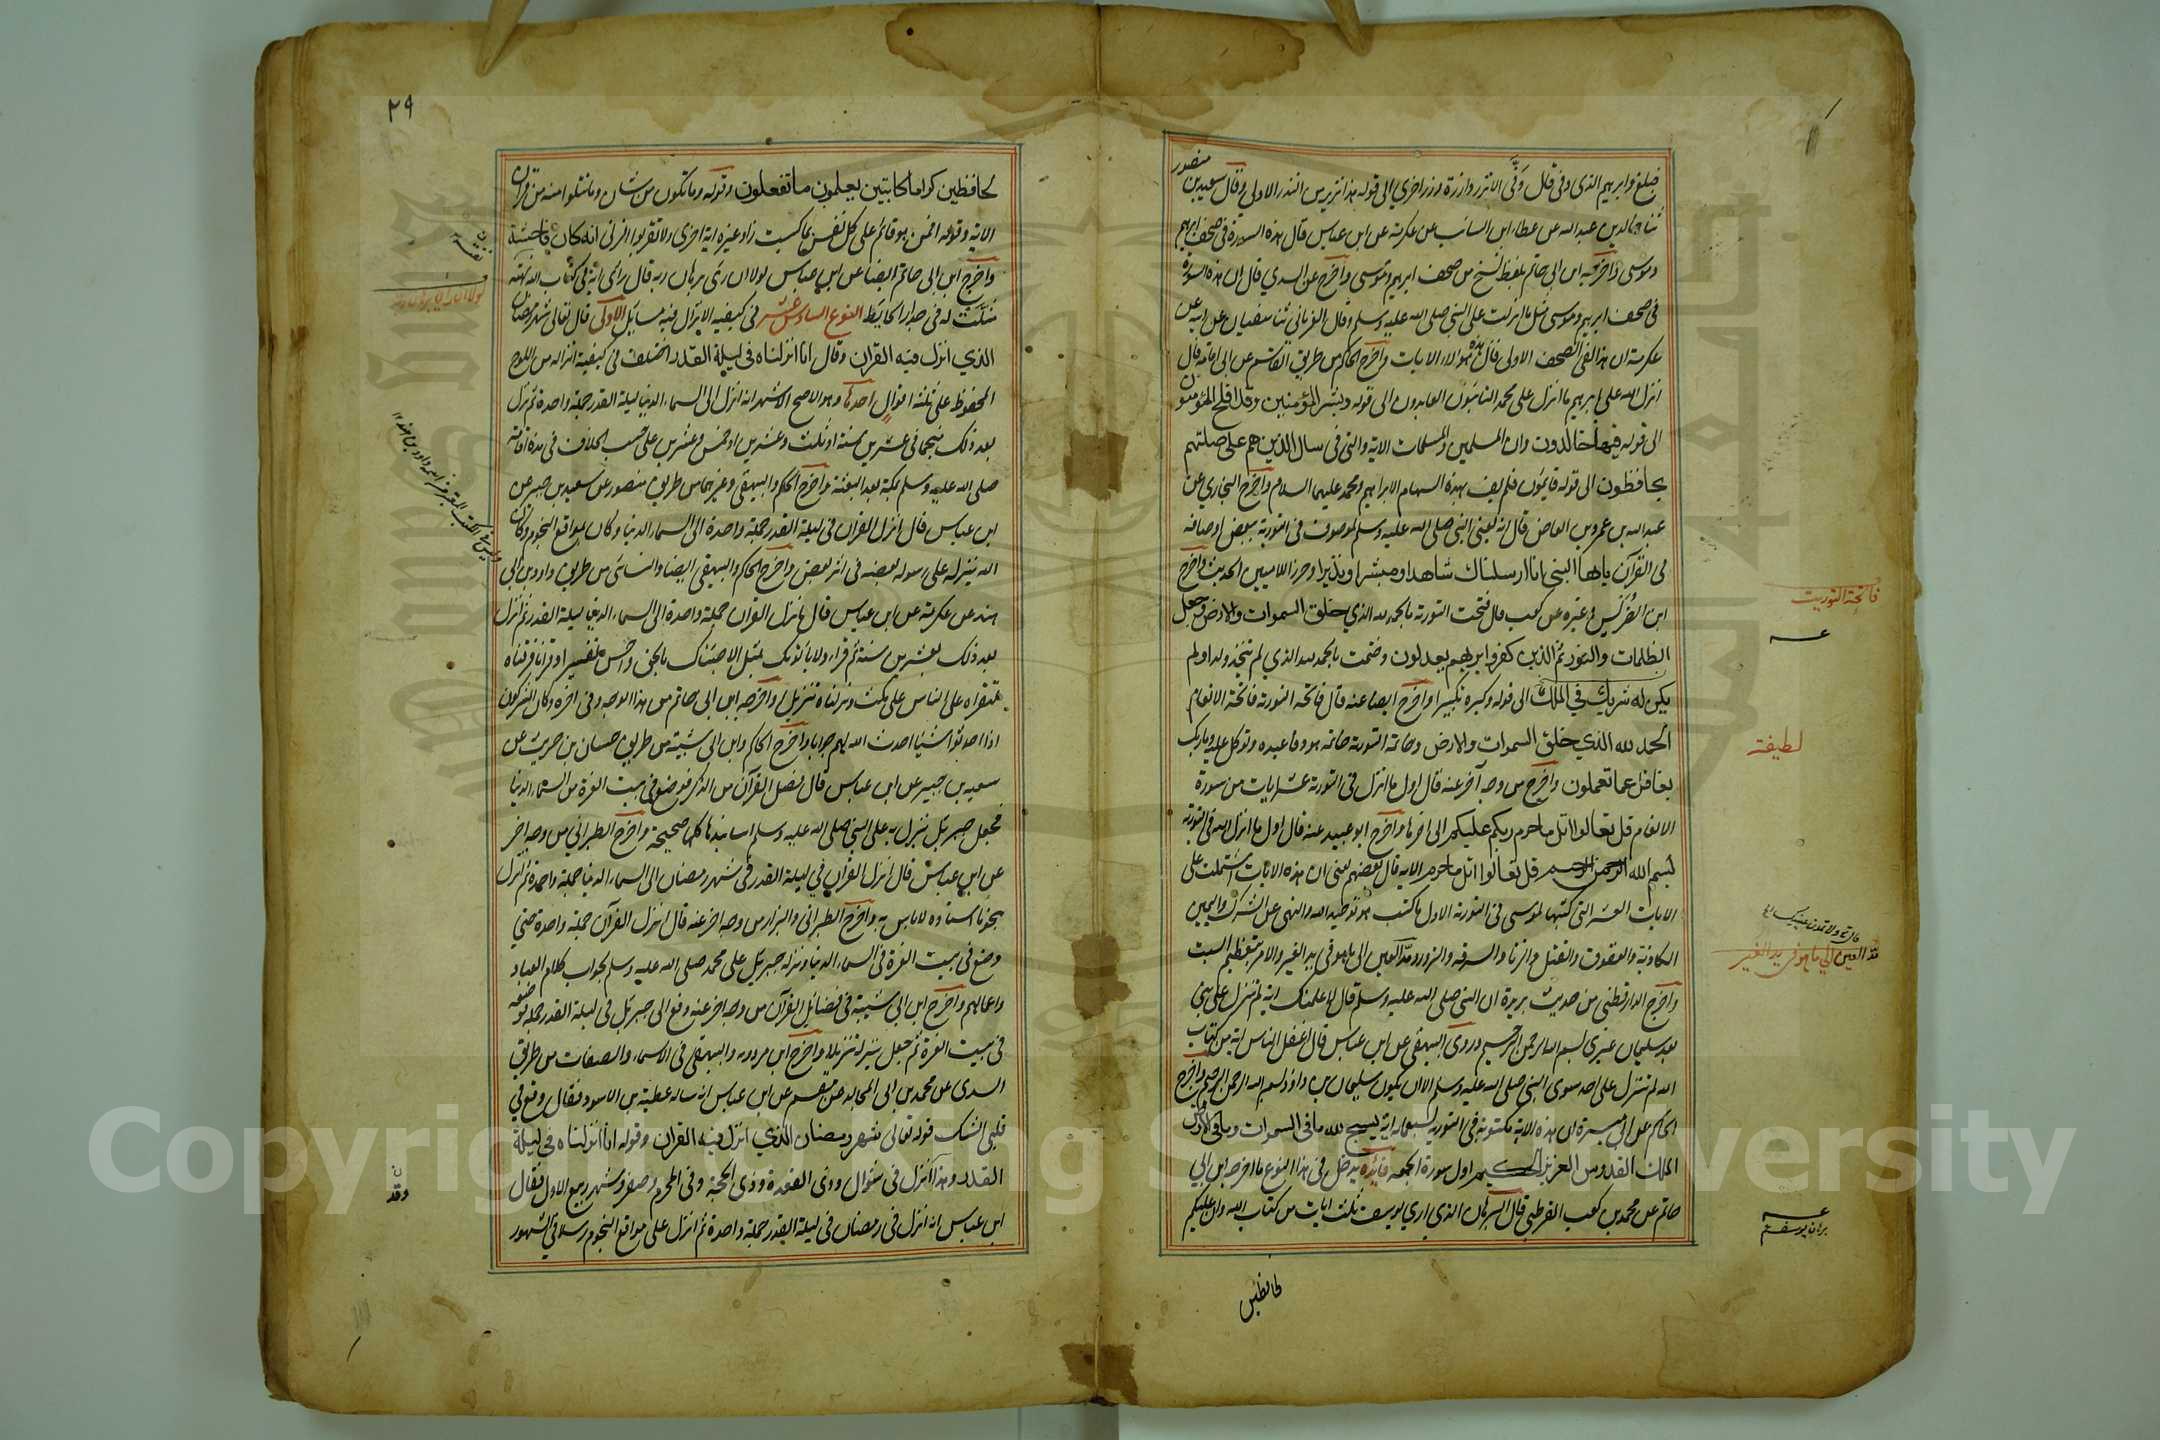 فبلغ وابرهيم الذي وفى قال وفّى الا تزر وازرة وزر اخرى الى قوله هذا نذير من النذر الاولى وقال سعيد بن منصور
ثنا خالد بن عبد الله عن عطاء ابن السائب عن عكرمة عن ابن عباس قال هذه السورة في صحف ابرهيم
وموسى واخرجه ابن ابى حاتم بلفظ نسخ من صحف ابرهيم وموسى واخرج عن السدي قال ان هذه السورة
في صحف ابرهيم وموسى مثل ما انزلت على النبي صلى الله عليه وسلم وقال الفريابي ثنا سفيان عن ابيه عن
عكرمة ان هذا لفى الصحف الاولى قال هؤلاء الايات واخرج الحاكم من طريق القاسم عن ابى امامة قال
انزل الله على ابرهيم مما انزل على محمد التائبون العابدون الى قوله وبشر المؤمنين وقد افلح المؤمنون
الى قوله فيها خالدون وان المسلمين والمسلمات الاية والتى فى سال الذين هم على صلاتهم
يحافظون الى قوله قايمون فلم يف بهذه السهام الا ابراهيم ومحمد عليهما السلام واخرج البخاري عن
عبد الله بن عمرو بن العاص قال انه يعنى النبى صلى الله عليه وسلم لموصوف فى التورية ببعض اوصافه
فى القرآن يايها النبى انا ارسلناك شاهدا ومبشرا ونذيرا وحرزا للاميين الحديث واخرج
ابن الضريس وغيره عن كعب قال فتحت التورية بالحمد لله الذي خلق السموات والارض وجعل
الظلمات والنور ثم الذين كفروا بربهم يعدلون وختمت بالحمد لله الذي لم يتخذ ولدا ولم
يكن له شريك في الملك الى قوله وكبره تكبيرا واخرج ايضا عنه قال فاتحة التورية فاتحة الانعام
الحمد لله الذي خلق السموات والارض وخاتمة التورية خاتمة هود فاعبده وتوكل عليه وما ربك
بغافل عما تعملون واخرج من وجه آخر عنه قال اول ما انزل فى التورية عشر ايات من سورة
الانعام قل تعالوا اتل ما حرم ربكم عليكم الى اخرها واخرج ابو عبيد عنه قال اول ما انزل الله فى التورية
بسم الله الرحمن الرحيم قل تعالوا اتل ما حرم الاية قال بعضهم يعنى ان هذه الايات اشتملت على
الايات العشر التى كتبها لموسى فى التورية الاول ما كتب هو توحيد الله والنهى عن الشرك واليمين
الكاذبة والعقوق والقتل والزنا والسرقة والزور ومدّ العين الى ما هو فى يد الغير والامر بتعظيم السبت
واخرج الدارقطنى من حديث بريدة ان النبى صلى الله عليه وسلم قال لاعلمنك اية لم تنزل على نبى
بعد سليمان غيرى بسم الله الرحمن الرحيم وروى البيهقى عن ابن عباس قال اغفل الناس اية من كتاب
الله لم تنزل على احد سوى النبى صلى الله عليه وسلم الا ان يكون سليمان بن داؤد بسم الله الرحمن الرحيم واخرج
الحاكم عن ابى ميسرة ان هذه الاية مكتوبة فى التورية بسبعماية اية يسبح لله ما فى السموات وما فى الارض
الملك القدوس العزيز الحكيم اول سورة الجمعة فائدة يدخل فى هذا النوع ما اخرجه ابن ابى
حاتم عن محمد بن كعب القرظى قال البرهان الذي اري يوسف ثلث ايات من كتاب الله وان عليكم
لحافظين
فاتحة التوريت
لطيفة
مدّ العين الى ما هو فى يد الغير
برهان يوسف
٢٩
لحافظين كراما كاتبين يعلمون ما تفعلون وقوله وما تكون من شان وما تتلوا منه من قرآن
الاية وقوله افمن هو قائم على كل نفس بما كسبت زاد غيره اية اخرى ولا تقربوا الزنى انه كان فاحشة
واخرج ابن ابى حاتم ايضا عن ابن عباس لولا ان رأى برهان ربه قال رأى اية فى كتاب الله نهته
مثلت له فى جدار الحايط النوع السادس عشر فى كيفية الانزال فيه مسايل الاولى قال تعالى شهر رمضان
الذي انزل فيه القران وقال انا انزلناه فى ليلة القدر اختلف فى كيفية انزاله من اللوح
المحفوظ على ثلثة اقوال احدها وهو الاصح الاشهر انه انزل الى السماء الدنيا ليلة القدر جملة واحدة ثم نزل
بعد ذلك منجما فى عشرين سنة او ثلث وعشرين او خمس وعشرين على حسب الخلاف فى مدة اقامته
صلى الله عليه وسلم بمكة بعد البعثة واخرج الحاكم والبيهقى وغيرهما من طريق منصور عن سعيد بن جبير عن
ابن عباس قال انزل القران فى ليلة القدر جملة واحدة الى السماء الدنيا وكان بمواقع النجوم وكان
الله ينزله على رسوله بعضه فى اثر بعض واخرج الحاكم والبيهقى ايضا والنسائى من طريق داود بن ابى
هند عن عكرمة عن ابن عباس قال انزل القران جملة واحدة الى السماء الدنيا ليلة القدر ثم انزل
بعد ذلك بعشرين سنة ثم قراء ولا ياتونك بمثل الا جئناك بالحق واحسن تفسيرا وقرانا فرقناه
لتقراه على الناس على مكث ونزلناه تنزيلا واخرجه ابن ابى حاتم من هذا الوجه وفى اخره وكان المشركون
اذا احدثوا شيئا احدث الله لهم جوابا واخرج الحاكم وابن ابى شيبة من طريق حسان بن حريث عن
سعيد بن جبير عن ابن عباس قال فصل القرآن من الذكر فوضع فى بيت العزة من السماء الدنيا
فجعل جبريل ينزل به على النبى صلى الله عليه وسلم اسانيدها كلها صحيحة واخرج الطبراني من وجه اخر
عن ابن عباس قال انزل القران في ليلة القدر فى شهر رمضان الى السماء الدنيا جملة واحدة ثم انزل
نجوما اسناده لا باس به واخرج الطبرانى والبزار من وجه اخر عنه قال انزل القرآن جملة واحدة حتى
وضع فى بيت العزة فى السماء الدنيا ونزله جبريل على محمد صلى الله عليه وسلم بجواب كلام العباد
واعمالهم واخرج ابن ابى شيبة فى فضائل القرآن من وجه اخر عنه دفع الى جبريل فى ليلة القدر جملة فوضعه
فى بيت العزة ثم جعل ينزله تنزيلا واخرج ابن مردويه والبيهقى فى الاسماء والصفات من طريق
السدى عن محمد بن ابى المجالد عن مقسم عن ابن عباس انه ساله عطية بن الاسود فقال وقع في
قلبى الشك قوله تعالى شهر رمضان الذي انزل فيه القران وقوله انا انزلناه فى ليلة
القدر وهذا انزل فى شوال وذى القعدة وذى الحجة وفى المحرم وصفر وشهر ربيع الاول فقال
ابن عباس انه انزل فى رمضان فى ليلة القدر جملة واحدة ثم انزل على مواقع النجوم رسلا فى الشهور
Copyright © King Saud University